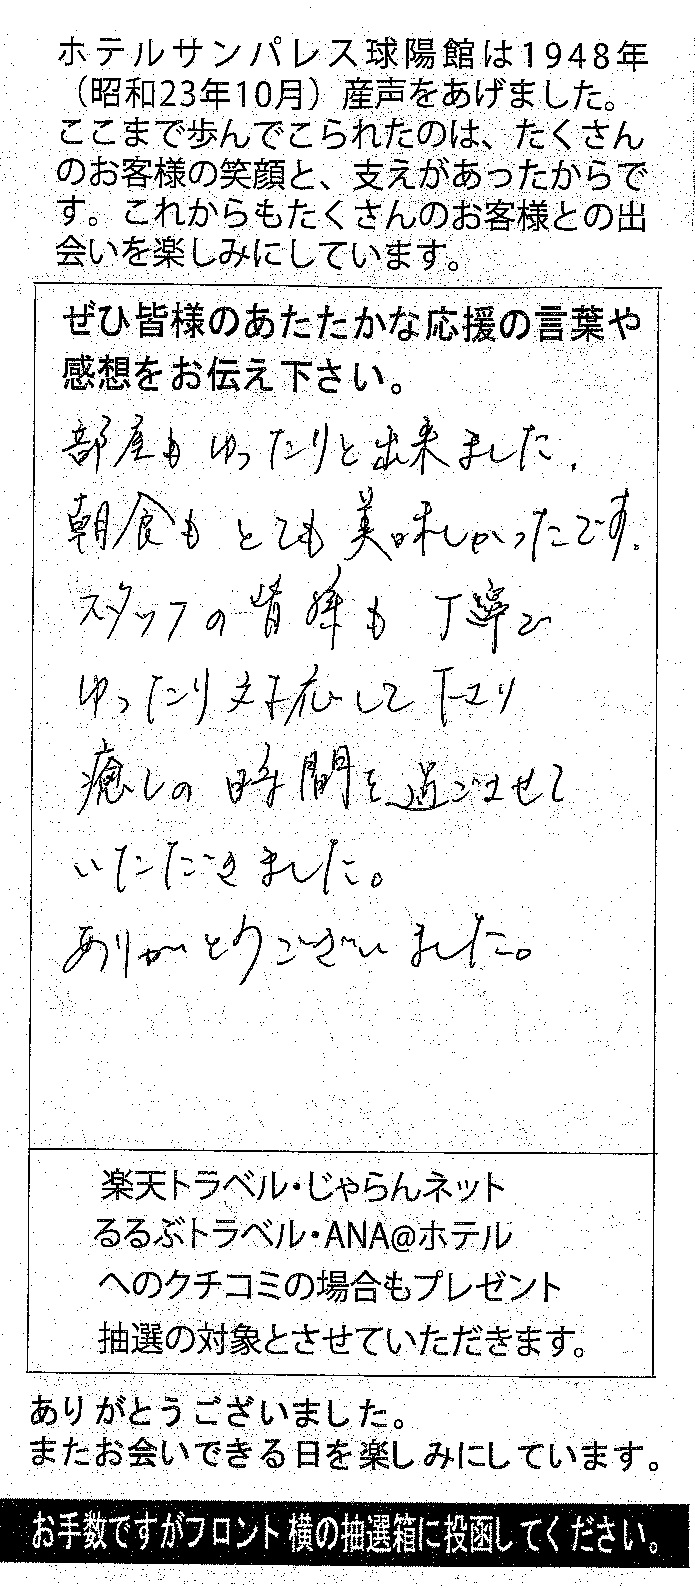 ホテルサンパレス球陽館は1948年
（昭和23年10月）産声をあげました。
ここまで歩んでこられたのは、たくさん
のお客様の笑顔と、支えがあったからで
す。これからもたくさんのお客様との出
会いを楽しみにしています。
ぜひ皆様のあたたかな応援の言葉や
感想をお伝え下さい。
部屋もゆったりと出来ました。
朝食もとても美味しかったです。
スタッフの皆様も丁寧で
ゆったり対応して下さり
癒しの時間を過ごさせて
いただきました。
ありがとうございました。
楽天トラベル・じゃらんネット
るるぶトラベル・ANA@ホテル
へのクチコミの場合もプレゼント
抽選の対象とさせていただきます。
ありがとうございました。
またお会いできる日を楽しみにしています。
お手数ですがフロント横の抽選箱に投函してください。